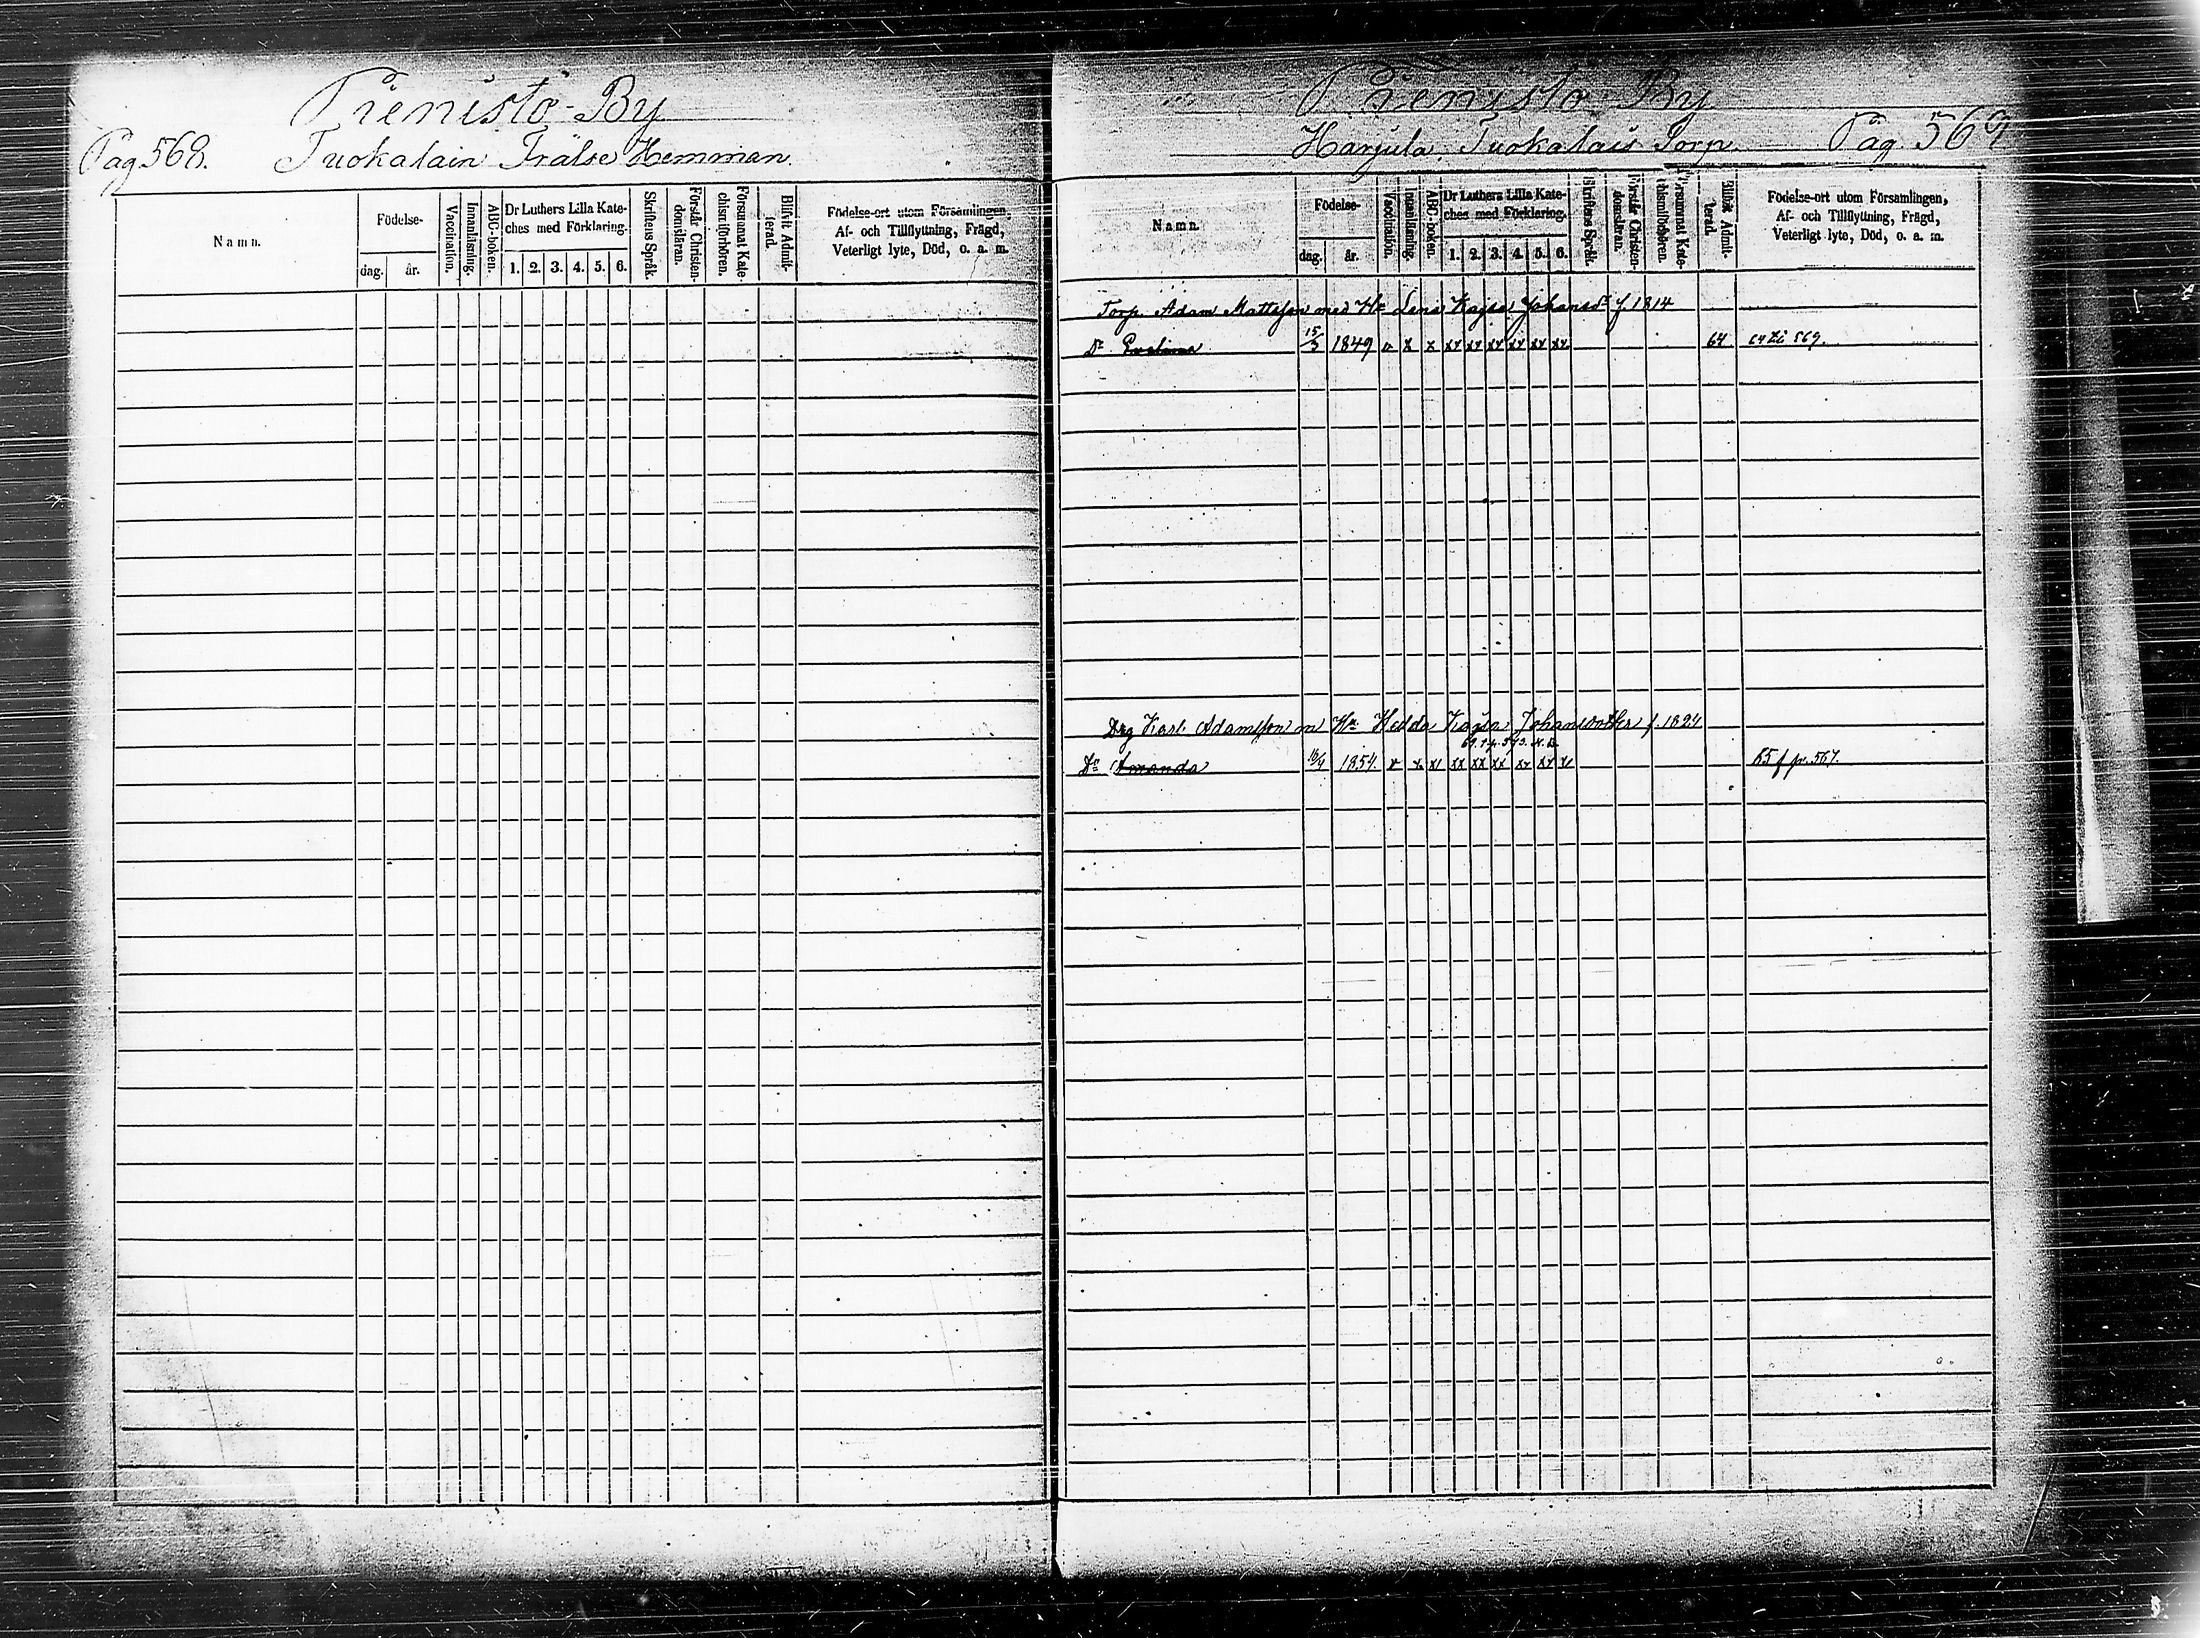 Pienistö By
Pag 568. Tuokalain Frälse Hemman.
Namn.
Födelse-
dag. år.
Vaccination.
Innanläsning.
ABC-boken.
Dr Luthers Lilla Kate-
ches med Förklaring.
1. 2. 3. 4. 5. 6.
Skriftens Språk.
Förstår Christen-
domsläran.
Försummat Kate-
chismiförhören.
Blifvit Admit-
terad.
Födelse-ort utom Församlingen,
Af- och Tillflyttning, Frägd,
Veterligt lyte, Död, o. a. m.
Pienistö By
Harjula, Tuokalais Torp. Pag 569
Namn.
Födelse-
dag. år.
Vaccination.
Innanläsning.
ABC-boken.
Dr Luthers Lilla Kate-
ches med Förklaring.
1. 2. 3. 4. 5. 6.
Skriftens Språk.
Förstår Christen-
domsläran.
Försummat Kate-
chismiförhören.
Blifvit Admit-
terad.
Födelse-ort utom Församlingen,
Af- och Tillflyttning, Frägd,
Veterligt lyte, Död, o. a. m.
Torp. Adam Mattsson med Hu Lena Kajsa Johansdr f. 1814
Dr Evelina 15/3 1849 v x x xx xx xx xx xx xx 64 569.
Drg Karl Adamsson m Hu Hedda Kajsa Johansdotter f. 1824
Dr Amanda 10/4 1854. v x x xx xx xx xx xx x 65 f pr. 567.